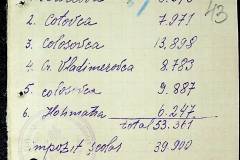 43
2. Colovca 7.971
3. Colosovca 13.898
4. Gr. Vladimerovca 8.783
5. colosvca 9.887
6. 6.247
total 53.371
impozit școlar 39.900